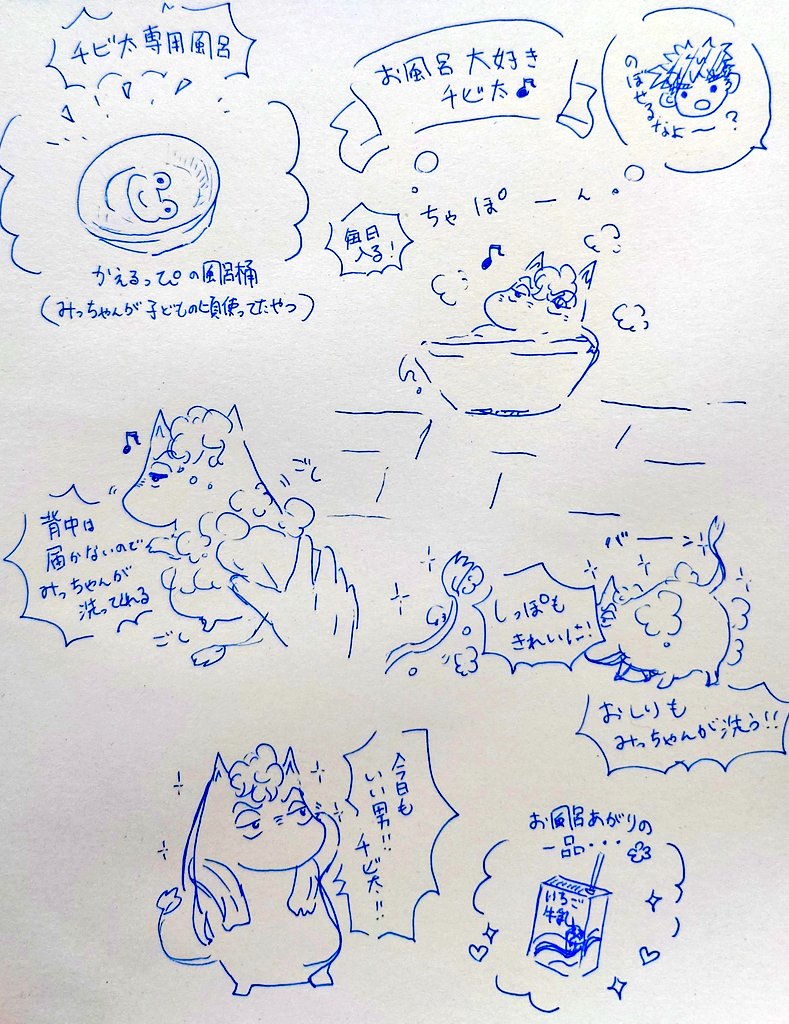 チビ太専用風呂
かえるっぴの風呂桶
(みっちゃんが子どもの頃使ってたやつ)
お風呂大好き
チビ太♪
のぼせるなよ〜?
ちゃぽーん
毎日
入る!
♪
♫
ごし
背中は
届かないので
みっちゃんが
洗ってくれる
ごし
しっぽも
きれいに!
バーン
おしりも
みっちゃんが洗う!!
今日も
いい男!!
チビ太!!
お風呂あがりの
一品・・・
いちご
牛乳